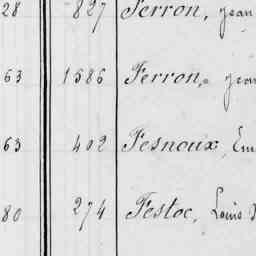 28 827 Ferron, Jean
63 1586 Ferron, Jean
63 402 Fesnoux, Em
80 274 Festoc, Louis